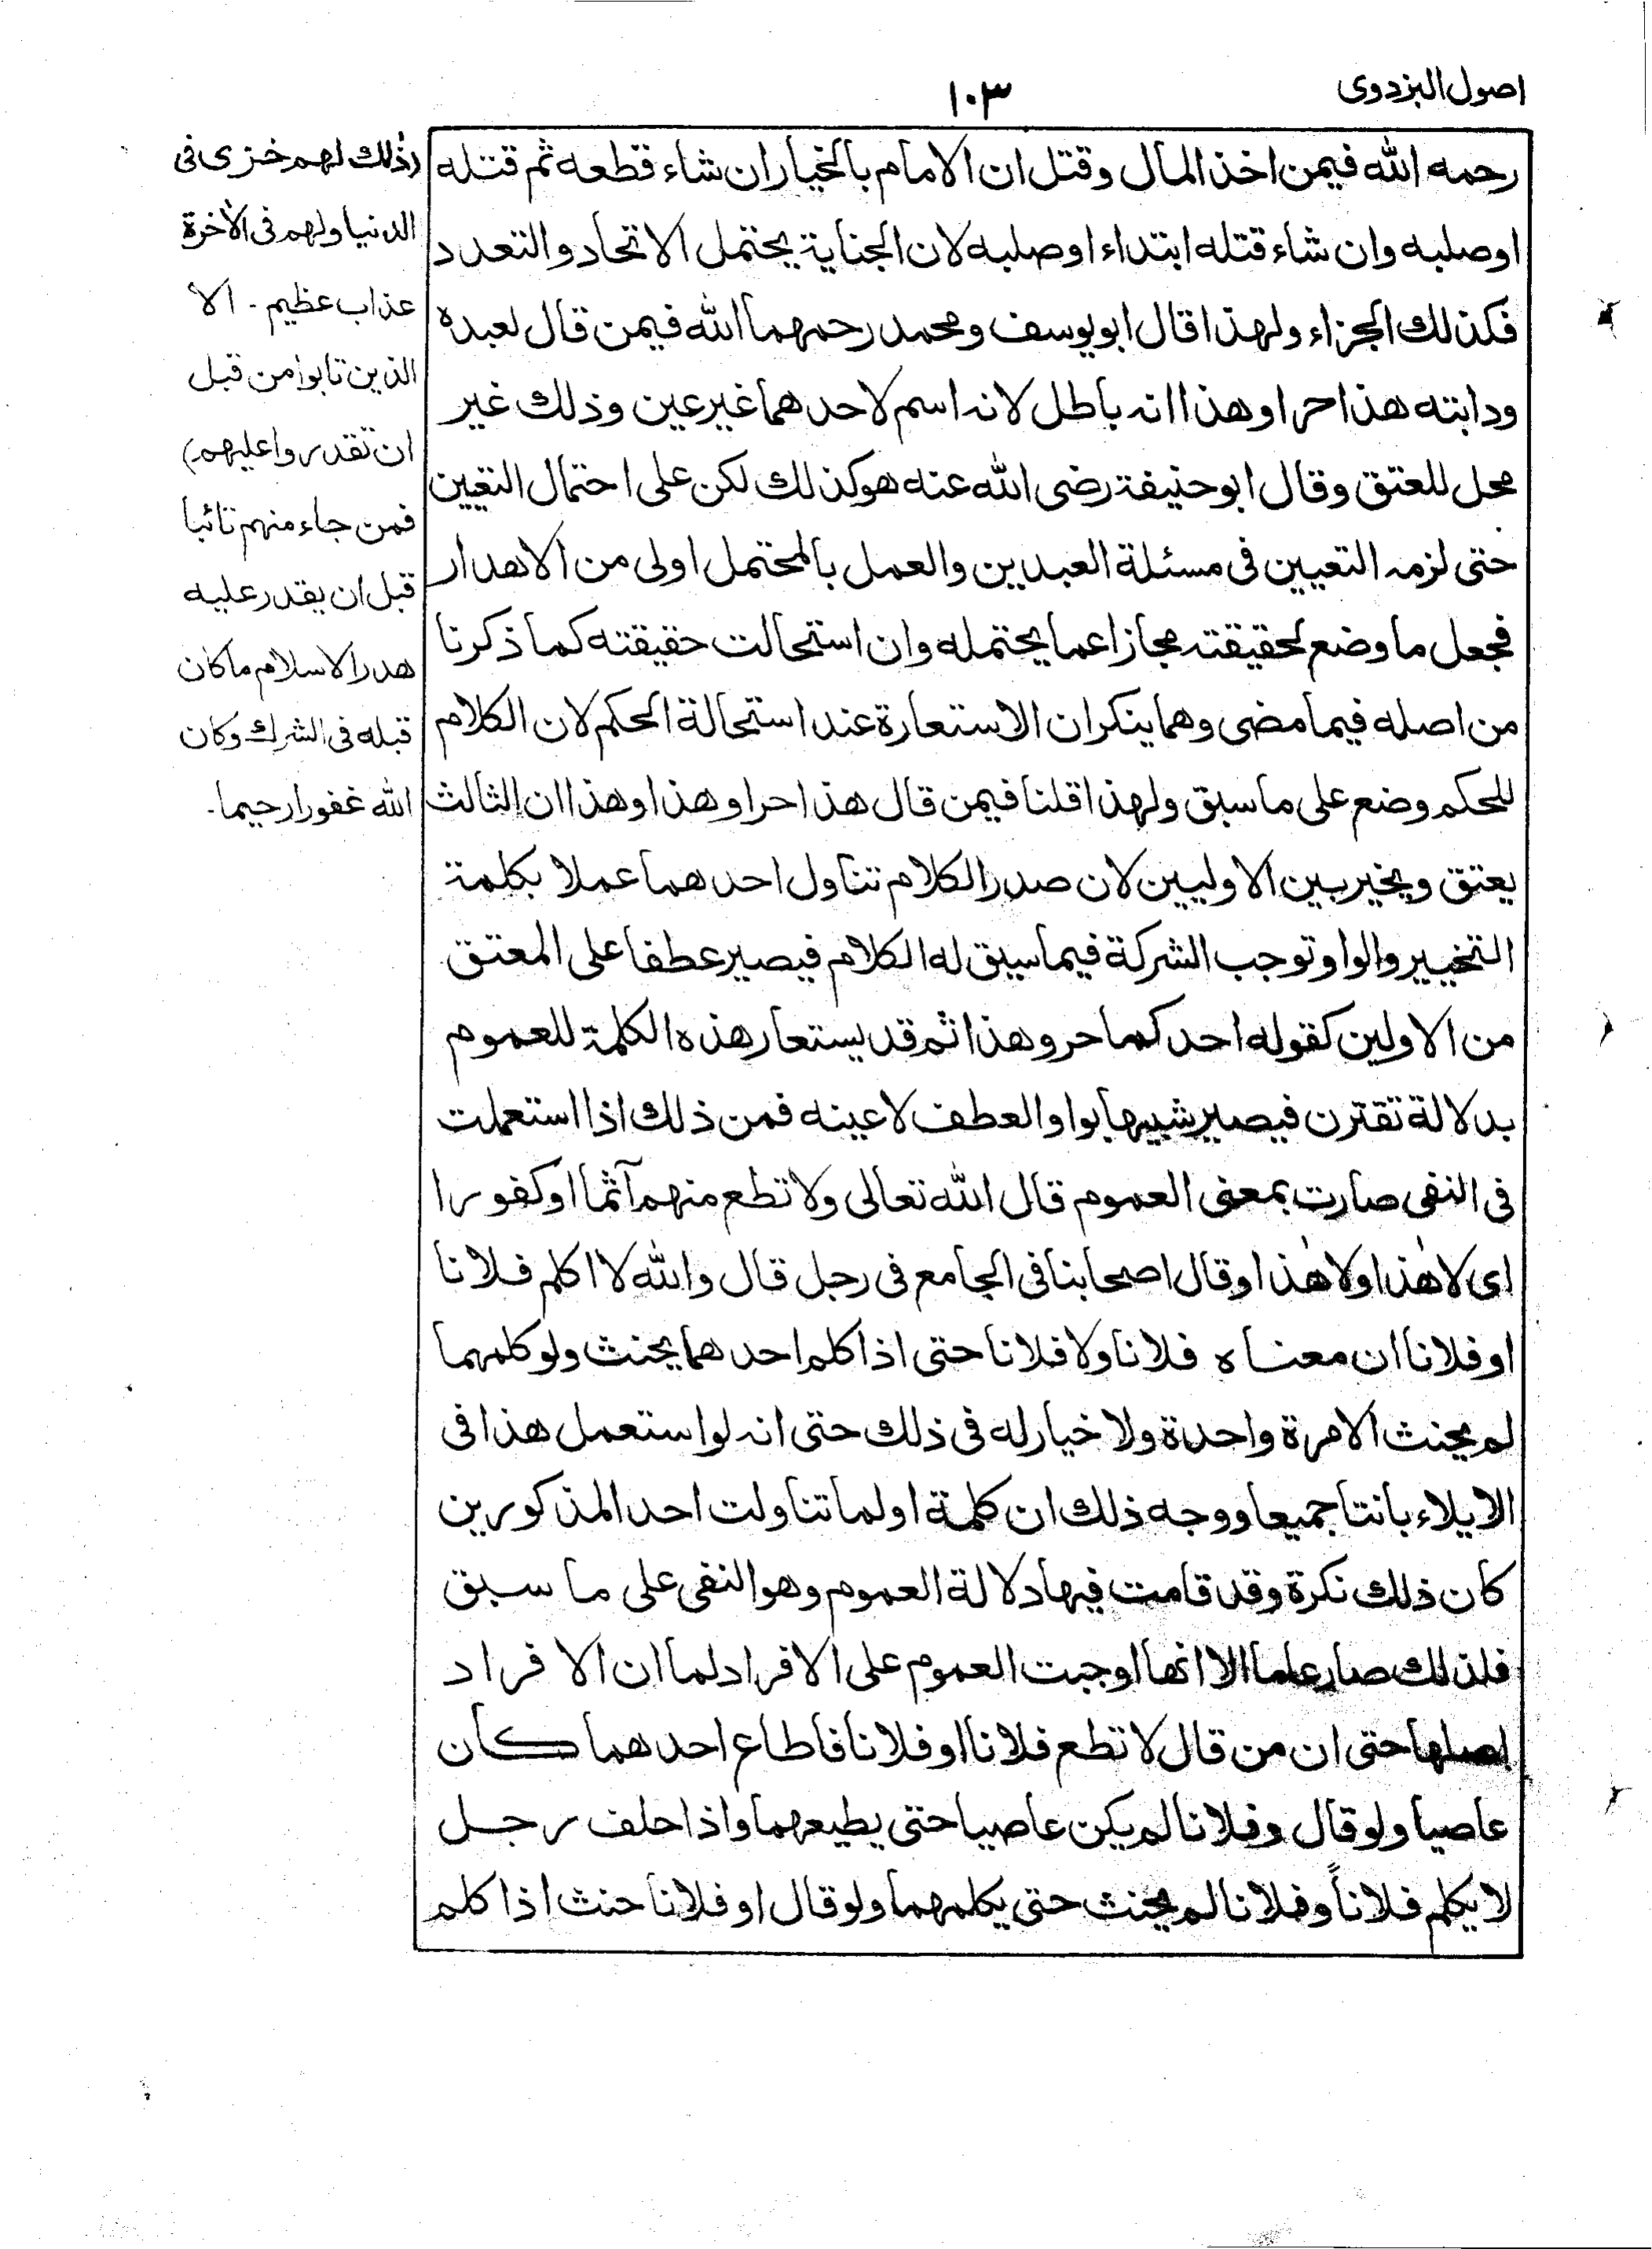 اصول البزدوى
١٠٣
رحمه الله فيمن اخذ المال وقتل ان الامام بالخيار ان شاء قطعه ثم قتله
او صلبه وان شاء قتله ابتداء او صلبه لان الجناية يحتمل الاتحاد والتعدد
فكذلك الجزاء ولهذا قال ابو يوسف ومحمد رحمهما الله فيمن قال لعبده
ودابته هذا حر او هذا انه باطل لانه اسم لاحدهما غير عين وذلك غير
محل للعتق وقال ابو حنيفة رضى الله عنه هو كذلك لكن على احتمال التعيين
حتى لزمه التعيين فى مسئلة العبدين والعمل بالمحتمل اولى من الاهدار
فجعل ما وضع لحقيقته مجازا عما يحتمله وان استحالت حقيقته كما ذكرنا
من اصله فيما مضى وهما ينكران الاستعارة عند استحالة الحكم لان الكلام
للحكم وضع على ما سبق ولهذا قلنا فيمن قال هذا حر او هذا وهذا ان الثالث
يعتق ويخير بين الاوليين لان صدر الكلام تناول احدهما عملا بكلمة
التخيير والواو توجب الشركة فيما سيق له الكلام فيصير عطفا على المعتق
من الاولين كقوله احدكما حر وهذا ثم قد يستعار هذه الكلمة للعموم
بدلالة تقترن فيصير شبيها بواو العطف لا عينه فمن ذلك اذا استعملت
فى النفى صارت بمعنى العموم قال الله تعالى ولا تطع منهم آثما او كفورا
اى لا هذا ولا هذا وقال اصحابنا فى الجامع فى رجل قال والله لا اكلم فلانا
او فلانا ان معناه فلانا ولا فلانا حتى اذا كلم احدهما يحنث ولو كلمهما
لم يحنث الا مرة واحدة ولا خيار له فى ذلك حتى انه لو استعمل هذا فى
الايلاء بانتا جميعا ووجه ذلك ان كلمة او لما تناولت احد المذكورين
كان ذلك نكرة وقد قامت فيها دلالة العموم وهو النفى على ما سبق
فلذلك صار عاما الا انها اوجبت العموم على الافراد لما ان الافراد
اصلها حتى ان من قال لا تطع فلانا او فلانا فاطاع احدهما كان
عاصيا ولو قال وفلانا لم يكن عاصيا حتى يطيعهما واذا حلف رجل
لا يكلم فلاناً وفلانا لم يحنث حتى يكلمهما ولو قال او فلانا حنث اذا كلم
(ذلك لهم خزى فى
الدنيا ولهم فى الآخرة
عذاب عظيم - الا
الذين تابوا من قبل
ان تقدروا عليهم)
فمن جاء منهم تائبا
قبل ان يقدر عليه
هدر الاسلام ما كان
قبله فى الشرك وكان
الله غفورا رحيما -